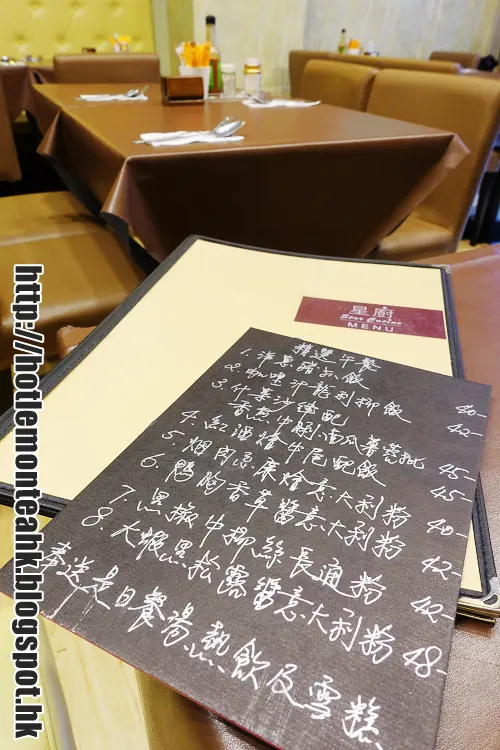 星廚
Star Cuisine
MENU
精選午餐
1. 洋蔥豬扒飯 40-
2. 咖喱沙龍利柳飯 42-
3. 什菜沙律配
香煎牛脷南瓜薯蓉批 45-
4. 紅酒燴牛尾配飯 45-
5. 烟肉忌廉燴意大利粉 40-
6. 鴨胸香草醬意大利粉 42-
7. 黑椒牛柳絲長通粉 42-
8. 大蝦黑松露醬意大利粉 48-
奉送是日餐湯熱飲及雪糕
http://hotlemonteahk.blogspot.hk